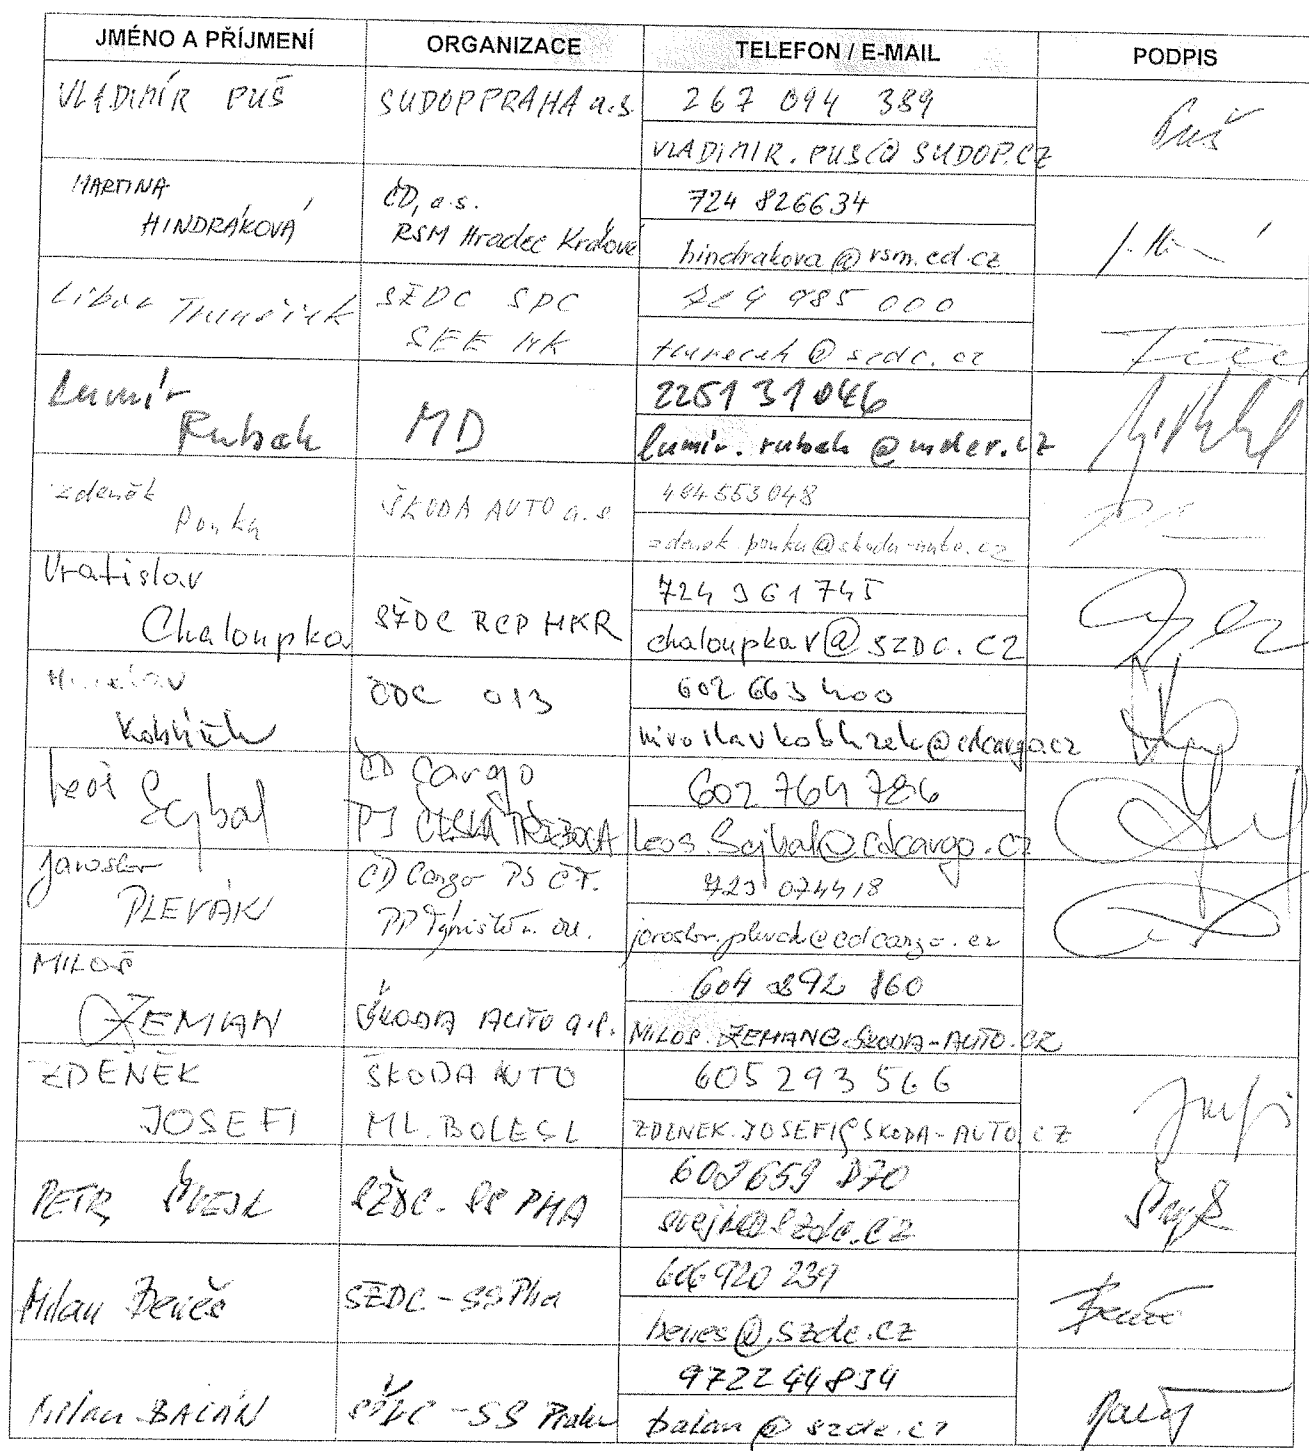 JMÉNO A PŘÍJMENÍ ORGANIZACE TELEFON / E-MAIL PODPIS
VLADIMÍR PUŠ SUDOP PRAHA a.s. 267 094 389
VLADIMIR.PUS@SUDOP.CZ
Puš
MARTINA
HINDRÁKOVÁ
ČD, a.s.
RSM Hradec Králové
724 826634
hindrakova@rsm.cd.cz
Libor
SŽDC SPC
SEE HK
985 000
@szdc.cz
Lumír
Rubák
MD
225131046
lumir.rubak@mdcr.cz
Zdeněk
Ponka
ŠKODA AUTO a.s.
zdenek.ponka@skoda-auto.cz
Vratislav
Chaloupka
SŽDC RCP HKR
724 361 745
chaloupkav@szdc.cz
Miroslav
ČDC 013
602 663 400
@cdcargo.cz
Leoš
Sejbal
ČD Cargo
PJ ČESKÁ TŘEBOVÁ
602 764 786
Leos.Sejbal@cdcargo.cz
Jaroslav
PLEVÁK
ČD Cargo PJ Č.T.
PP Týniště n. Orl.
723 074418
jaroslav.plevak@cdcargo.cz
MILOŠ
ZEMAN
ŠKODA AUTO a.s.
604 892 160
MILOS.ZEMAN@SKODA-AUTO.CZ
ZDENĚK
JOSEFI
ŠKODA AUTO
ML. BOLESL
605 293 566
ZDENEK.JOSEFI@SKODA-AUTO.CZ
PETR ŠVEJK SŽDC-SS PHA
svejk@szdc.cz
Milan Beneš SŽDC-SS Pha
606 920 239
benes@szdc.cz
Beneš
Milan BALÁN SŽDC-SS Praha
972244834
balan@szdc.cz